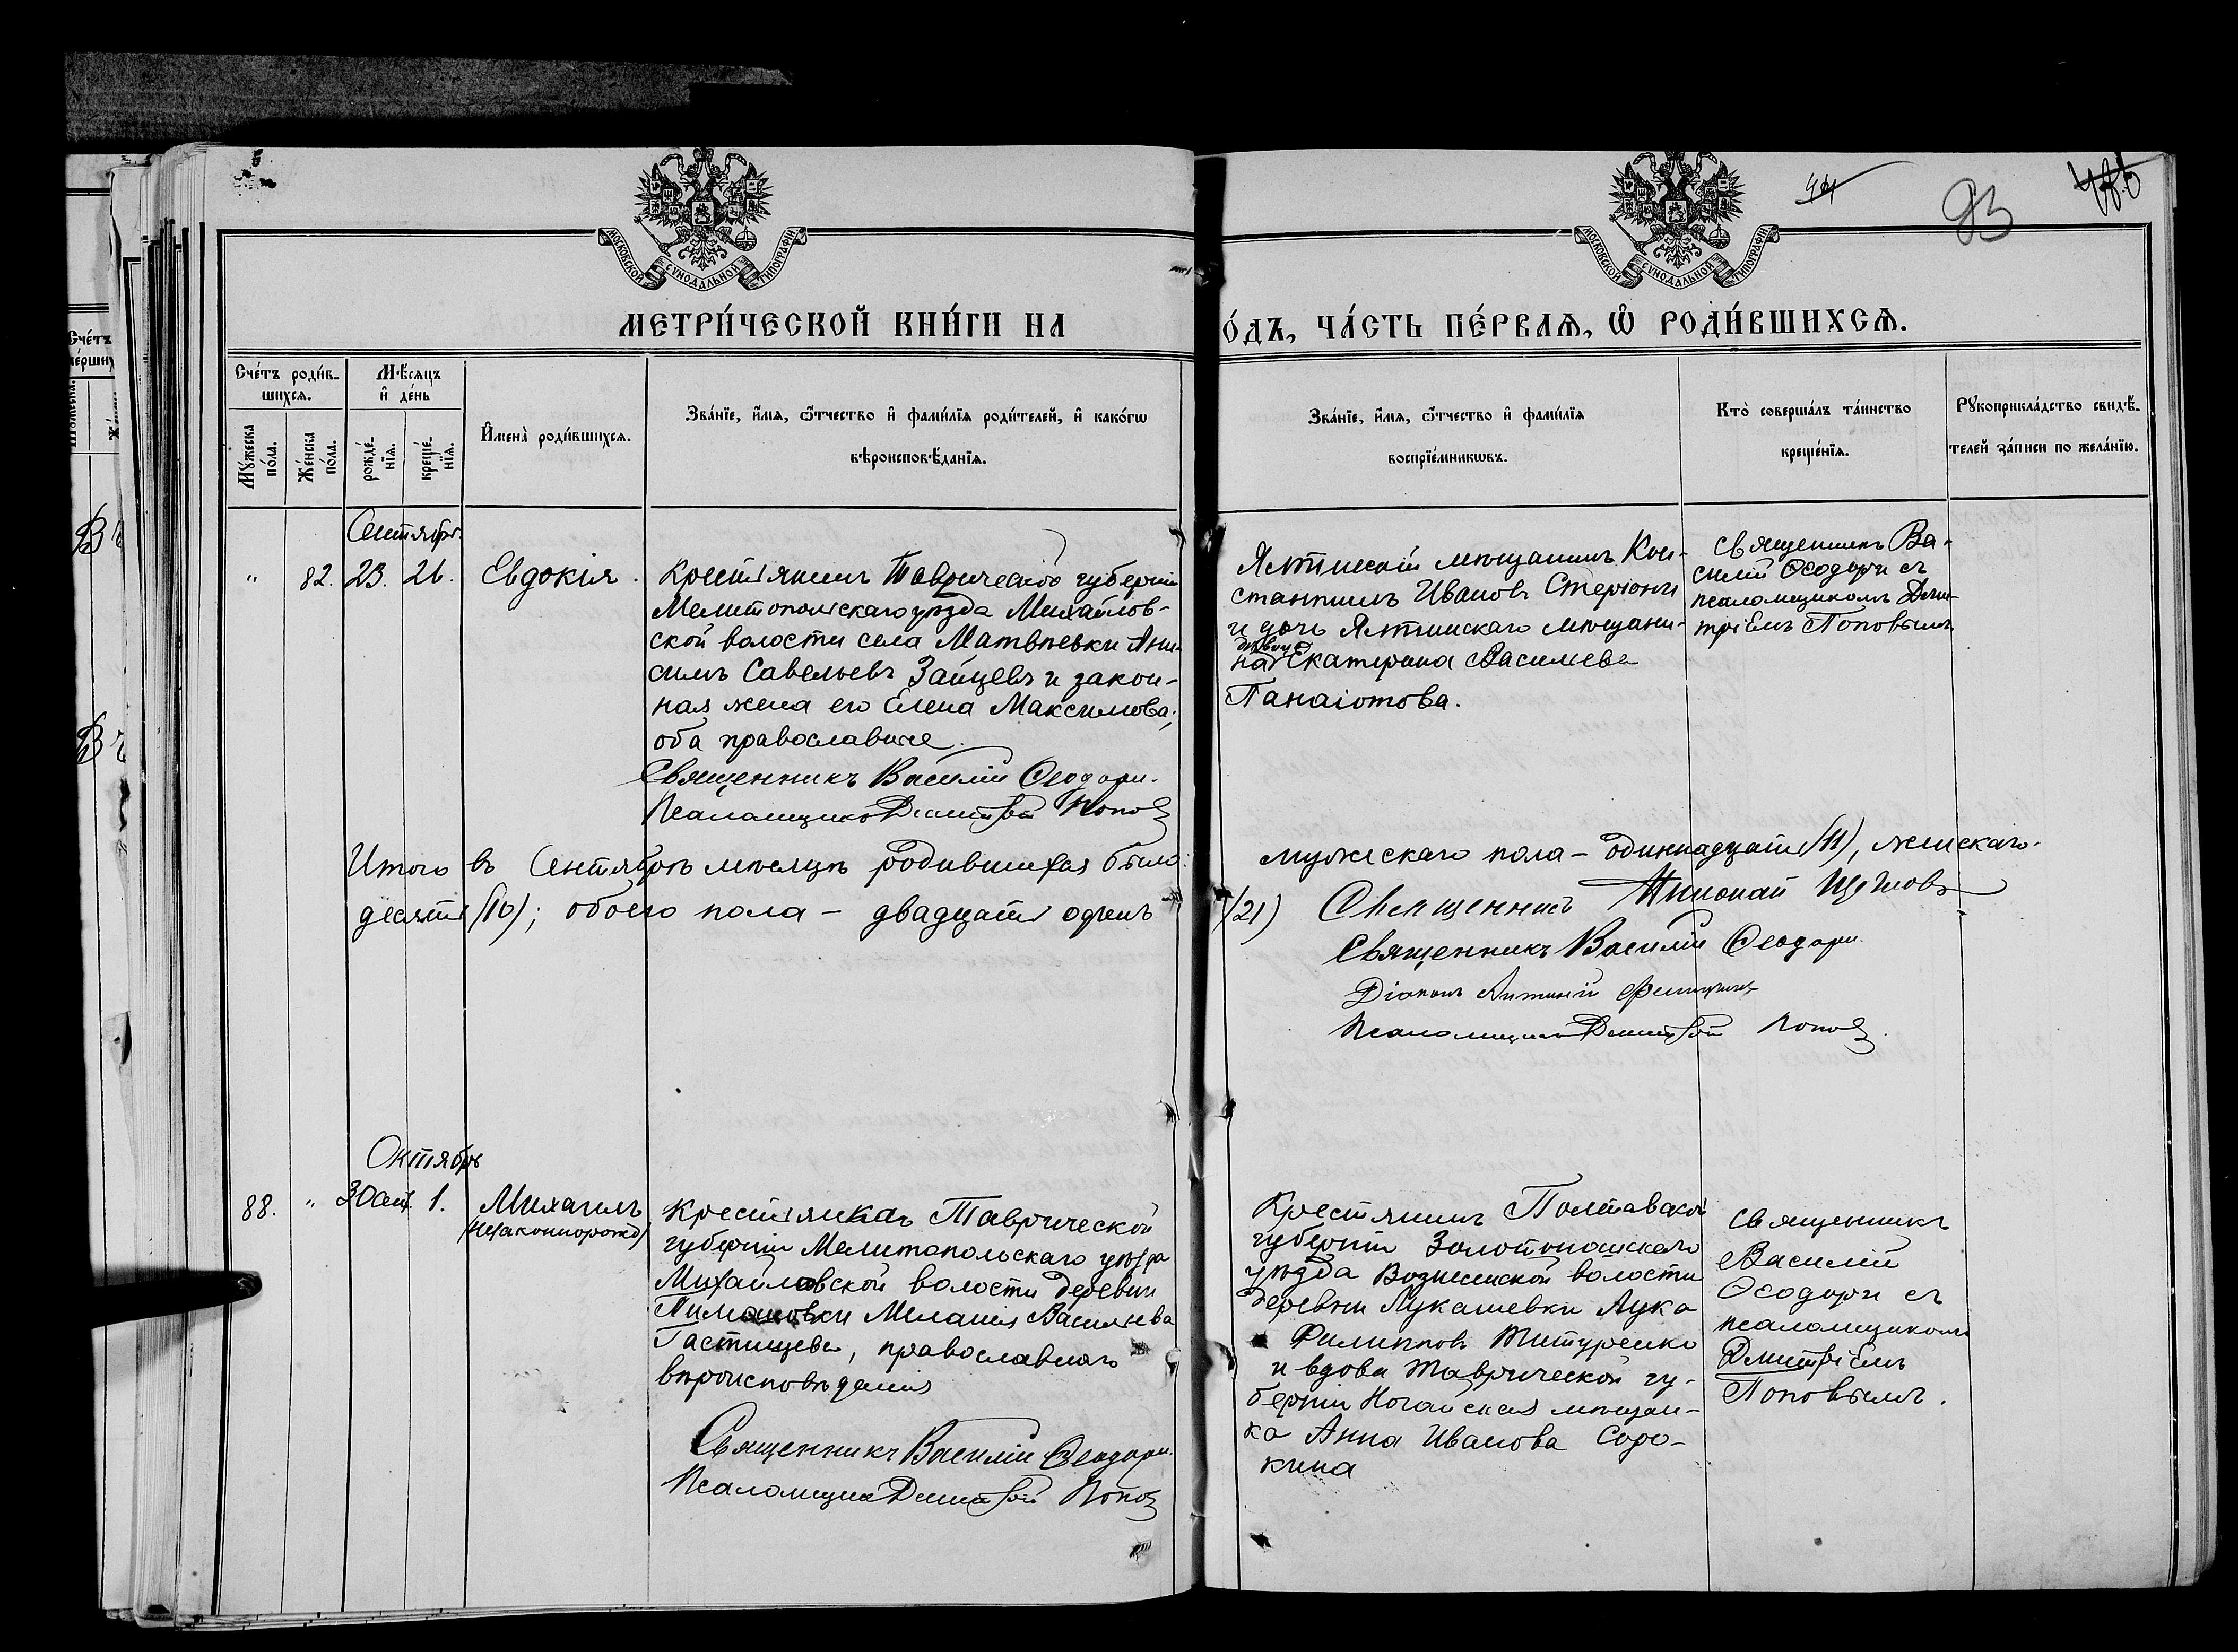 44
93
МОСКОВСКОЙ СѴНОДАЛЬНОЙ ТИПОГРАФІИ
МОСКОВСКОЙ СѴНОДАЛЬНОЙ ТИПОГРАФІИ
МЕТРИ́ЧЕСКОЙ КНИ́ГИ НА
О́ДЪ, ЧА́СТЬ ПЕ́РВАѦ, Ѡ҆ РОДИ́ВШИХСѦ.
Сче́тъ роди́в-
шихсѧ.
Мꙋ́жеска по́ла.
Же́нска по́ла.
Мѣ́сѧцъ
и҆ де́нь
рожде́-
нїѧ.
креще́-
нїѧ.
И҆мена̀ роди́вшихсѧ.
Зва́нїе, и҆́мѧ, ѻ҆́тчество и҆ фами́лїѧ роди́телей, и҆ како́гѡ
вѣроисповѣ́данїѧ.
Зва́нїе, и҆́мѧ, ѻ҆́тчество и҆ фами́лїѧ
воспрїе́мникѡвъ.
Кто̀ соверша́лъ та́инство
креще́нїѧ.
Рꙋкоприкла́дство свидѣ́-
телей за́писи по жела́нїю.
Сентябрь.
" 82. 23. 26. Евдокія.
Крестьянинъ Таврической губерніи
Мелитопольскаго уѣзда Михайлов-
ской волости села Матвѣевки Ани-
симъ Савельевъ Зайцевъ и закон-
ная жена его Елена Максимова;
оба православные.
Священникъ Василій Ѳеодори.
Псаломщикъ Димитрій Поповъ
Ялтинскій мѣщанинъ Кон-
стантинъ Ивановъ Стеріони
и дочь Ялтинскаго мѣщани-
на дѣвица Екатерина Васильева
Панаіотова.
Священникъ Ва-
силій Ѳеодори съ
псаломщикомъ Дими-
тріемъ Поповымъ
Итого въ Сентябрѣ мѣсяцѣ родившихся было:
мужескаго пола – одиннадцать (11), женскаго
десять (10); обоего пола – двадцать одинъ
(21)
Священникъ Николай
Священникъ Василій Ѳеодори
Діаконъ
Псаломщикъ Димитрій Поповъ.
Октябрь
88. " 30 сент. 1. Михаилъ
(незаконнорожд)
Крестьянка Таврической
губерніи Мелитопольскаго уѣзда
Михайловской волости деревни
Меланія Васильева
православнаго
вѣроисповѣданія
Священникъ Василій Ѳеодори.
Псаломщикъ Димитрій Поповъ
Крестьянинъ Полтавской
губерніи Золотоношскаго
уѣзда Вознесенской волости
деревни Лукашевки Лука
Филипповъ Титуренко
и вдова Таврической гу-
берніи Ногайская мѣщан-
ка Анна Иванова Соро-
кина
Священникъ
Василій
Ѳеодори съ
псаломщикомъ
Димитріемъ
Поповымъ.